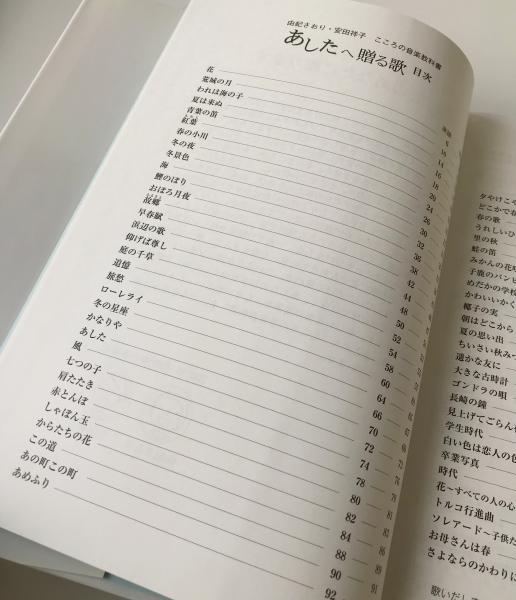 由紀さおり・安田祥子 こころの音楽教科書
あしたへ贈る歌 目次
花
荒城の月
われは海の子
夏は来ぬ
青葉の笛
紅葉
春の小川
冬の夜
冬景色
海
鯉のぼり
おぼろ月夜
故郷
早春賦
浜辺の歌
仰げば尊し
庭の千草
追憶
旅愁
ローレライ
冬の星座
かなりや
あした
風
七つの子
肩たたき
赤とんぼ
しゃぼん玉
からたちの花
この道
あの町この町
あめふり
16
18
20
24
26
28
30
32
36
38
42
44
48
50
52
54
58
60
64
66
70
72
74
78
80
82
84
88
90
92
79
81
83
85
89
91
夕やけこや
どこかで春
春の歌
うれしいひ
里の秋
蛙の笛
みかんの花咲
子鹿のバンビ
めだかの学校
かわいいかく
椰子の実
朝はどこから
夏の思い出
ちいさい秋み
遥かな友に
大きな古時計
ゴンドラの唄
長崎の鐘
見上げてごらん
学生時代
白い色は恋人の色
卒業写真
時代
花〜すべての人の心
トルコ行進曲
ソレアード〜子供た
お母さんは春
さよならのかわりに
歌いだし